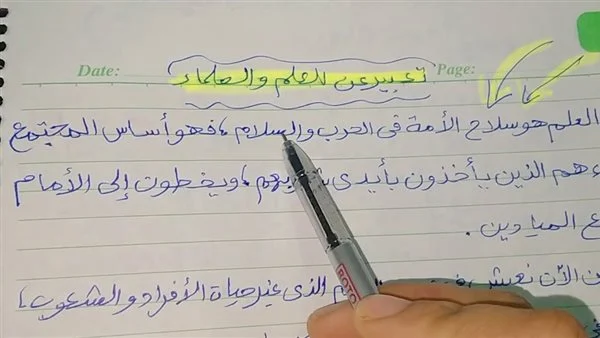 Date: Page:
تعبير عن العلم والعلماء
العلم هو سلاح الأمة في الحرب والسلام، فهو أساس المجتمع
هم الذين يأخذون بأيدى ويخطون إلى الأمام
الميادين.
الآن نعيش الذى غير حيات الأفراد والشعوب،
ROTO